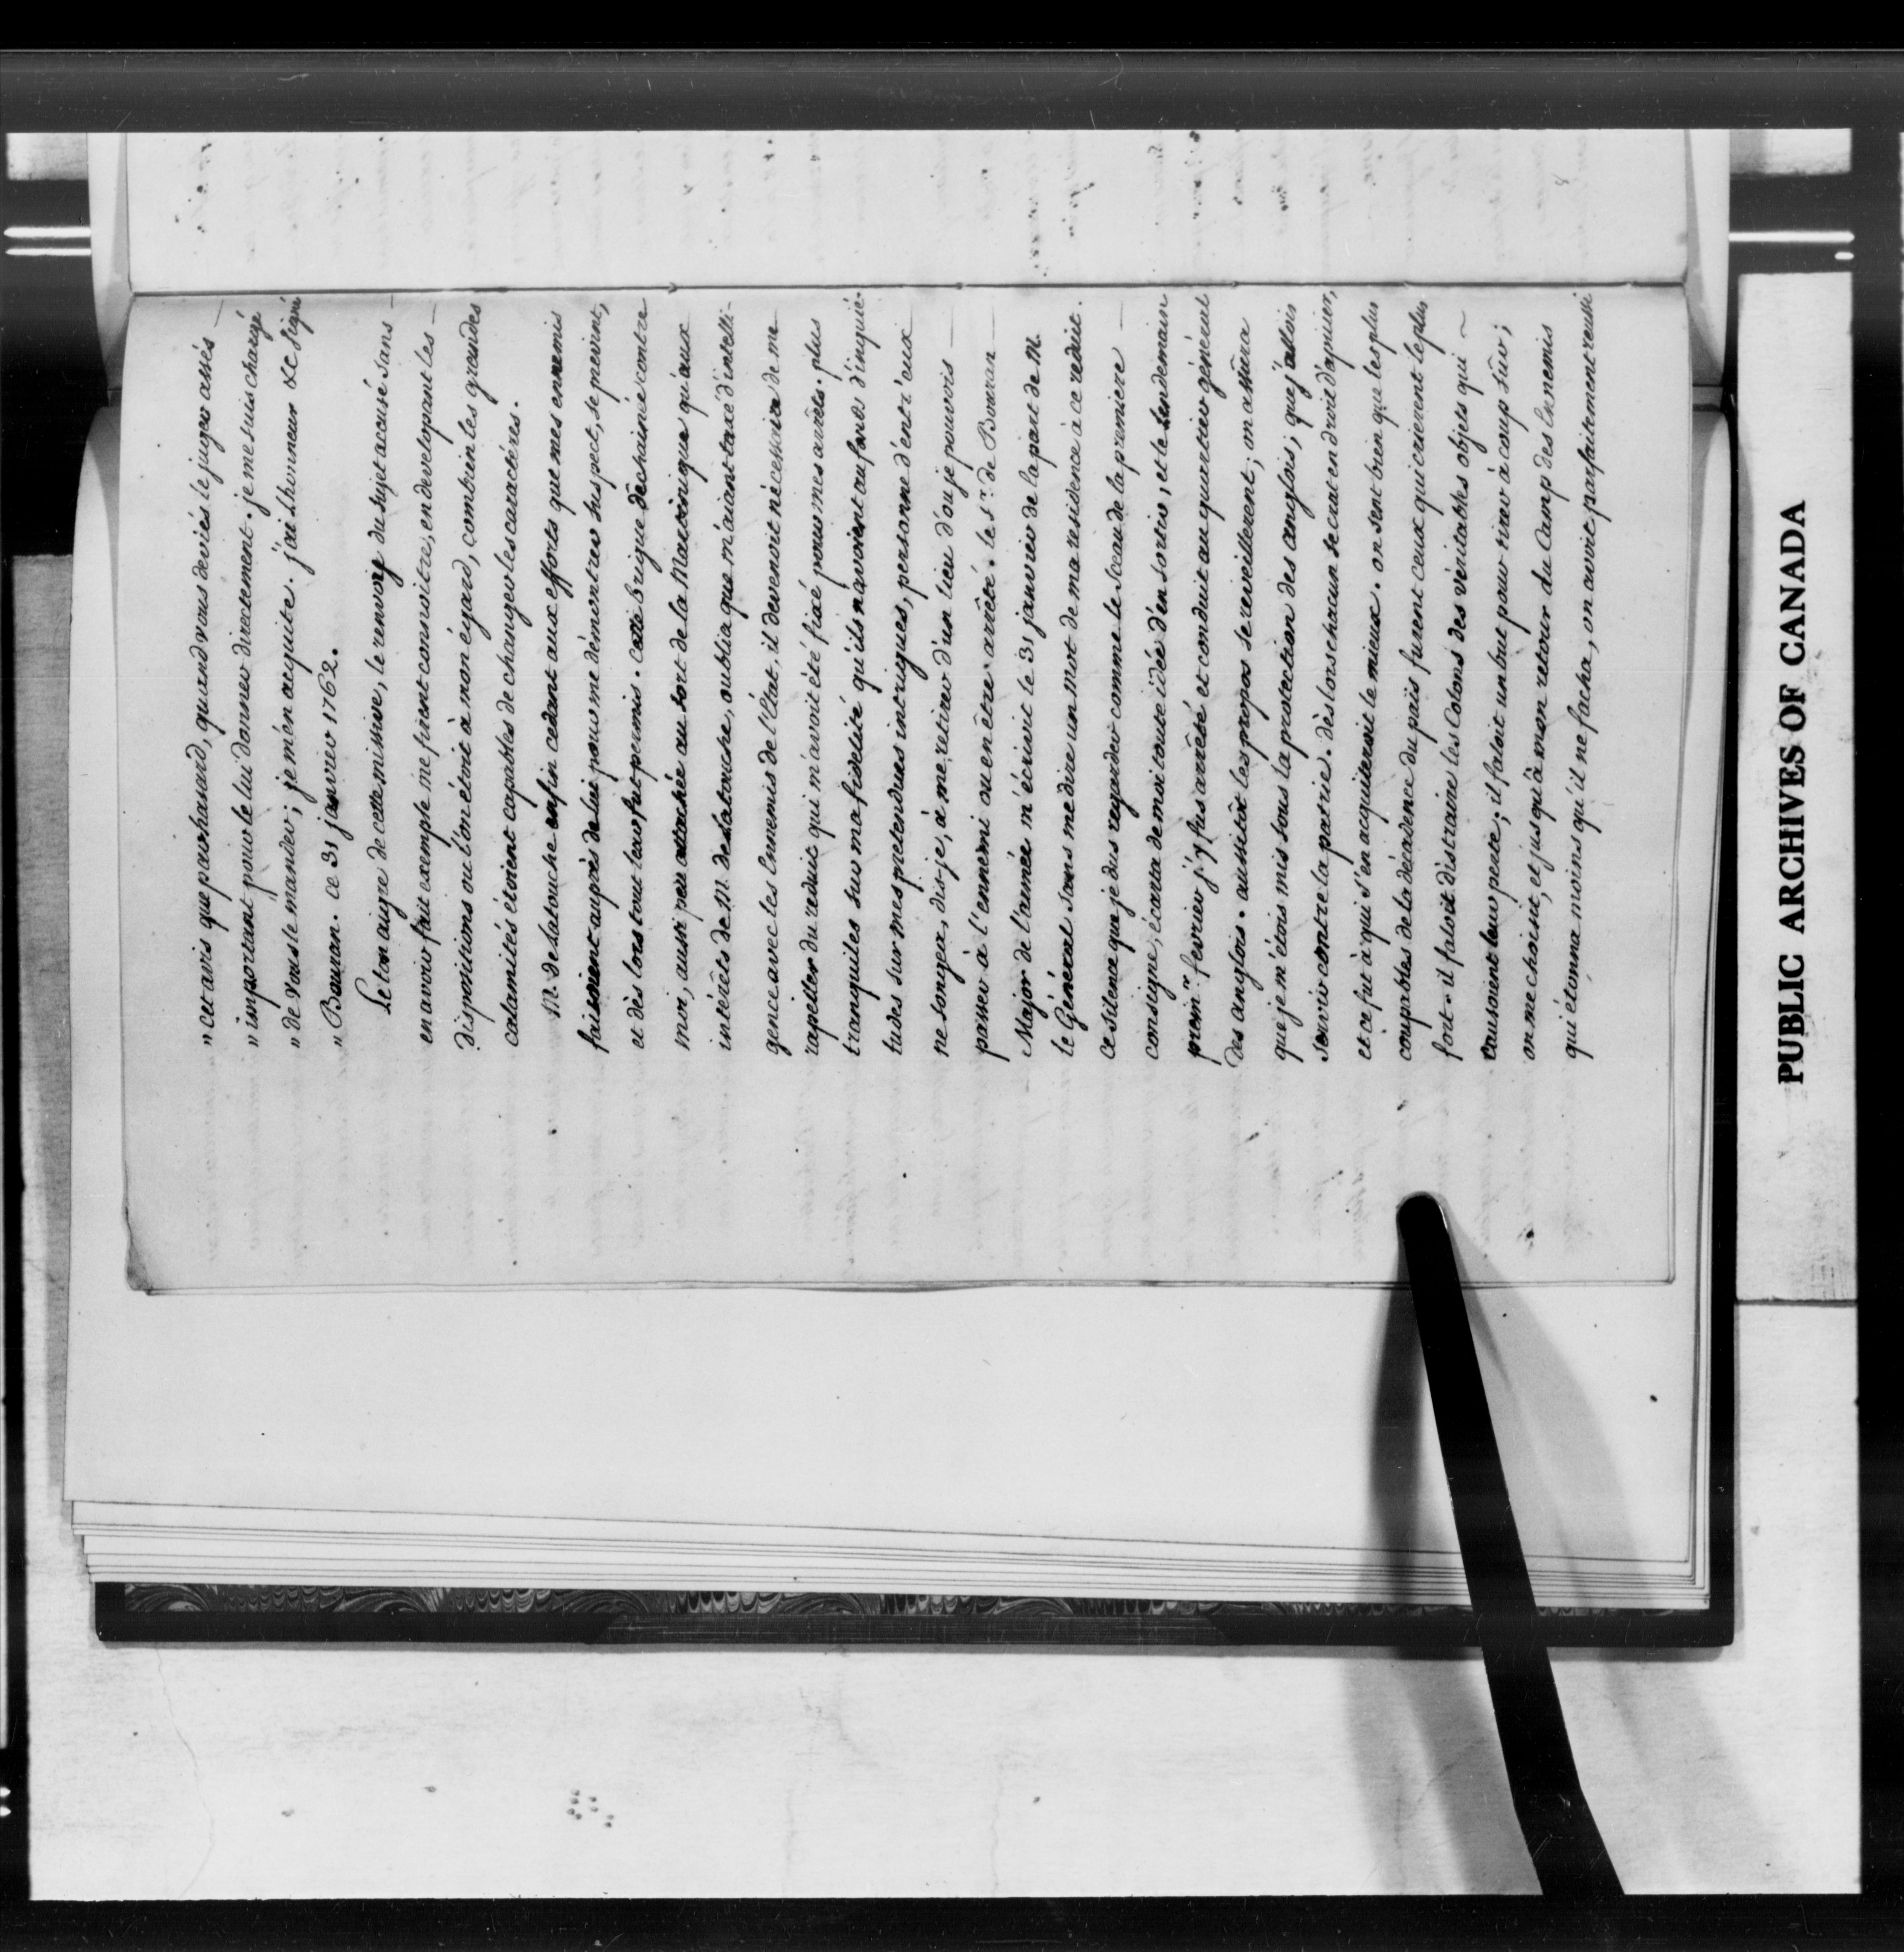 " cet avis que par hazard, quand vous deviés le juger assés —
" important pour le lui donner directement. je me suis chargé
" de vous le mander; je m'en acquite. j'ai l'honneur &c signé
" Bouran. ce 31 janvier 1762.
Le ton aigre de cette missive, le renvoy du sujet accusé sans —
en avoir fait exemple me firent connoitre, en developant les —
dispositions ou l'on étoit à mon égard, combien les grandes
calamités étoient capables de changer les caractéres.
M. de la touche enfin cedant aux efforts que mes ennemis
faisoient aupàs de lui pour me démontrer suspect, se prevint,
et dès lors tout leur fut permis. cette brigue déchainée contre
moi, aussi peu attachée au sort de la Martinique qu'aux
intérêts de M. de la touche, oublia que m'aiant taxé d'intelli-
gence avec les Ennemis de l'État, il devenoit nécessaire de me
rapeller du reduit qui m'avoit été fixé pour mes arrêts. plus
tranquiles sur ma fidelité qu'ils n'avoient au fond d'inquié-
tudes sur mes pretendues intrigues, personne d'entr'eux
ne songea, dis-je, à me retirer d'un lieu d'ou je pouvois —
passer à l'ennemi ou en être arrêté. le sr. de Bouran —
Major de l'armée m'écrivit le 31 janvier de la part de M.
le Géneral sans me dire un mot de ma residence à ce reduit.
ce silence que je dus regarder comme le sceau de la premiere —
consigne, écarta de moi toute idée d'en sortir, et le lendemain
premr. fevrier j'y fus arrêté et conduit au quartier général
des anglois. aussitôt les propos se reveillerent; on assûra
que je m'étois mis sous la protection des anglois; que j'allois
servir contre la patrie. dès lors chacun se crut en droit d'apuier,
et ce fut à qui s'en acquiteroit le mieux. on sent bien que les plus
coupables de la décadence du païs furent ceux qui crierent le plus
fort. il faloit distraire les Colons des véritables objets qui ~
causoient leur perte; il faloit un but pour tirer à coup sûr;
on me choisit, et jusqu'à mon retour du Camp des Ennemis
qui étonna moins qu'il ne facha, on avoit parfaitement reussi
PUBLIC ARCHIVES OF CANADA